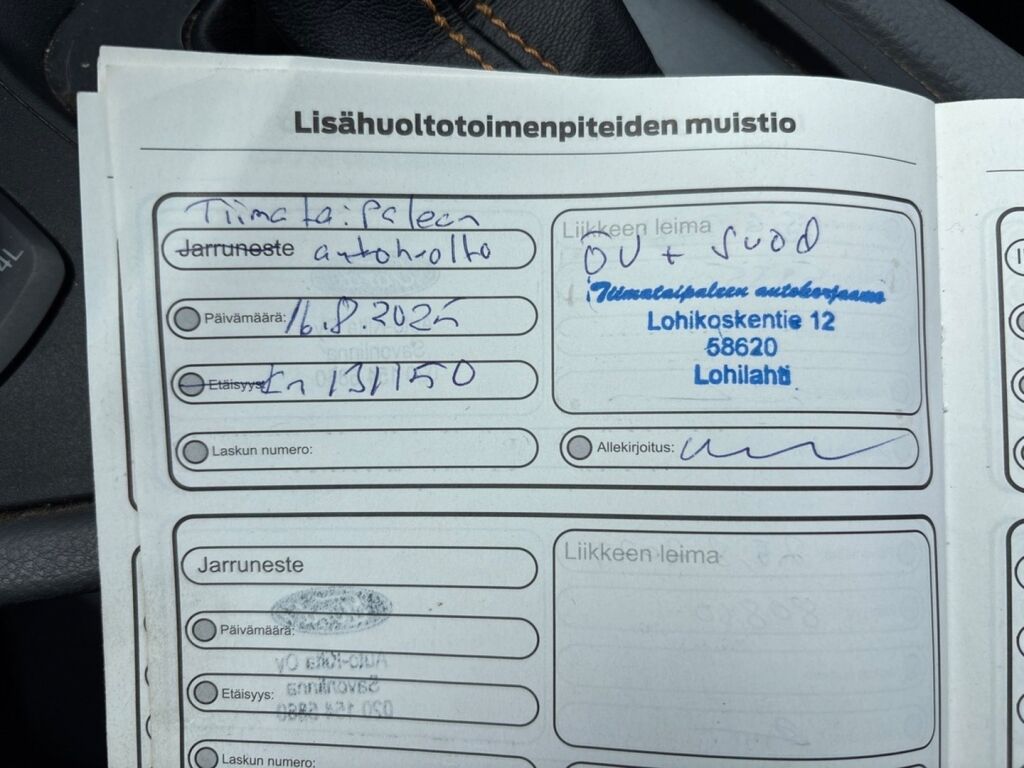 Lisähuoltotoimenpiteiden muistio
Tiimataipaleen
Jarruneste autohuolto
Päivämäärä: 16.8.2025
Etäisyys: km 131150
Laskun numero:
Liikkeen leima
ÖV + suod
Tiimataipaleen autokorjaamo
Lohikoskentie 12
58620
Lohilahti
Allekirjoitus:
Jarruneste
Päivämäärä:
Etäisyys:
Laskun numero:
Liikkeen leima
Auto-Kilta Oy
Savonlinna
4L